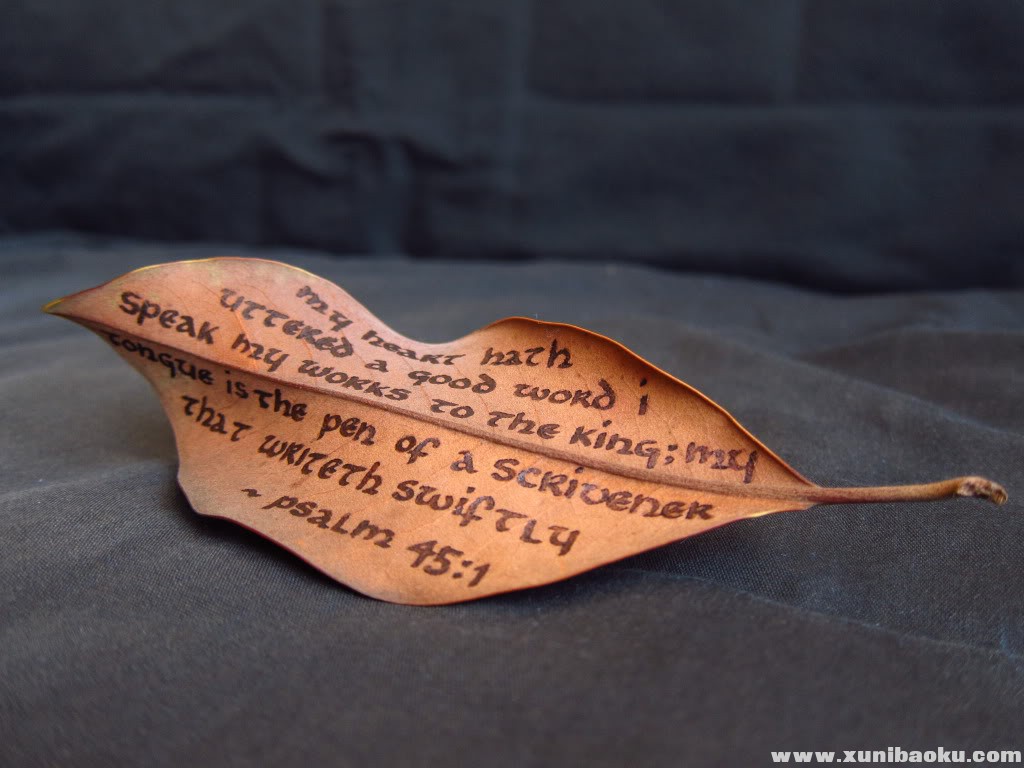 my heart hath
uttered a good word i
speak my works to the king; my
tongue is the pen of a scrivener
that writeth swiftly
~ psalm 45:1
www.xunibaoku.com